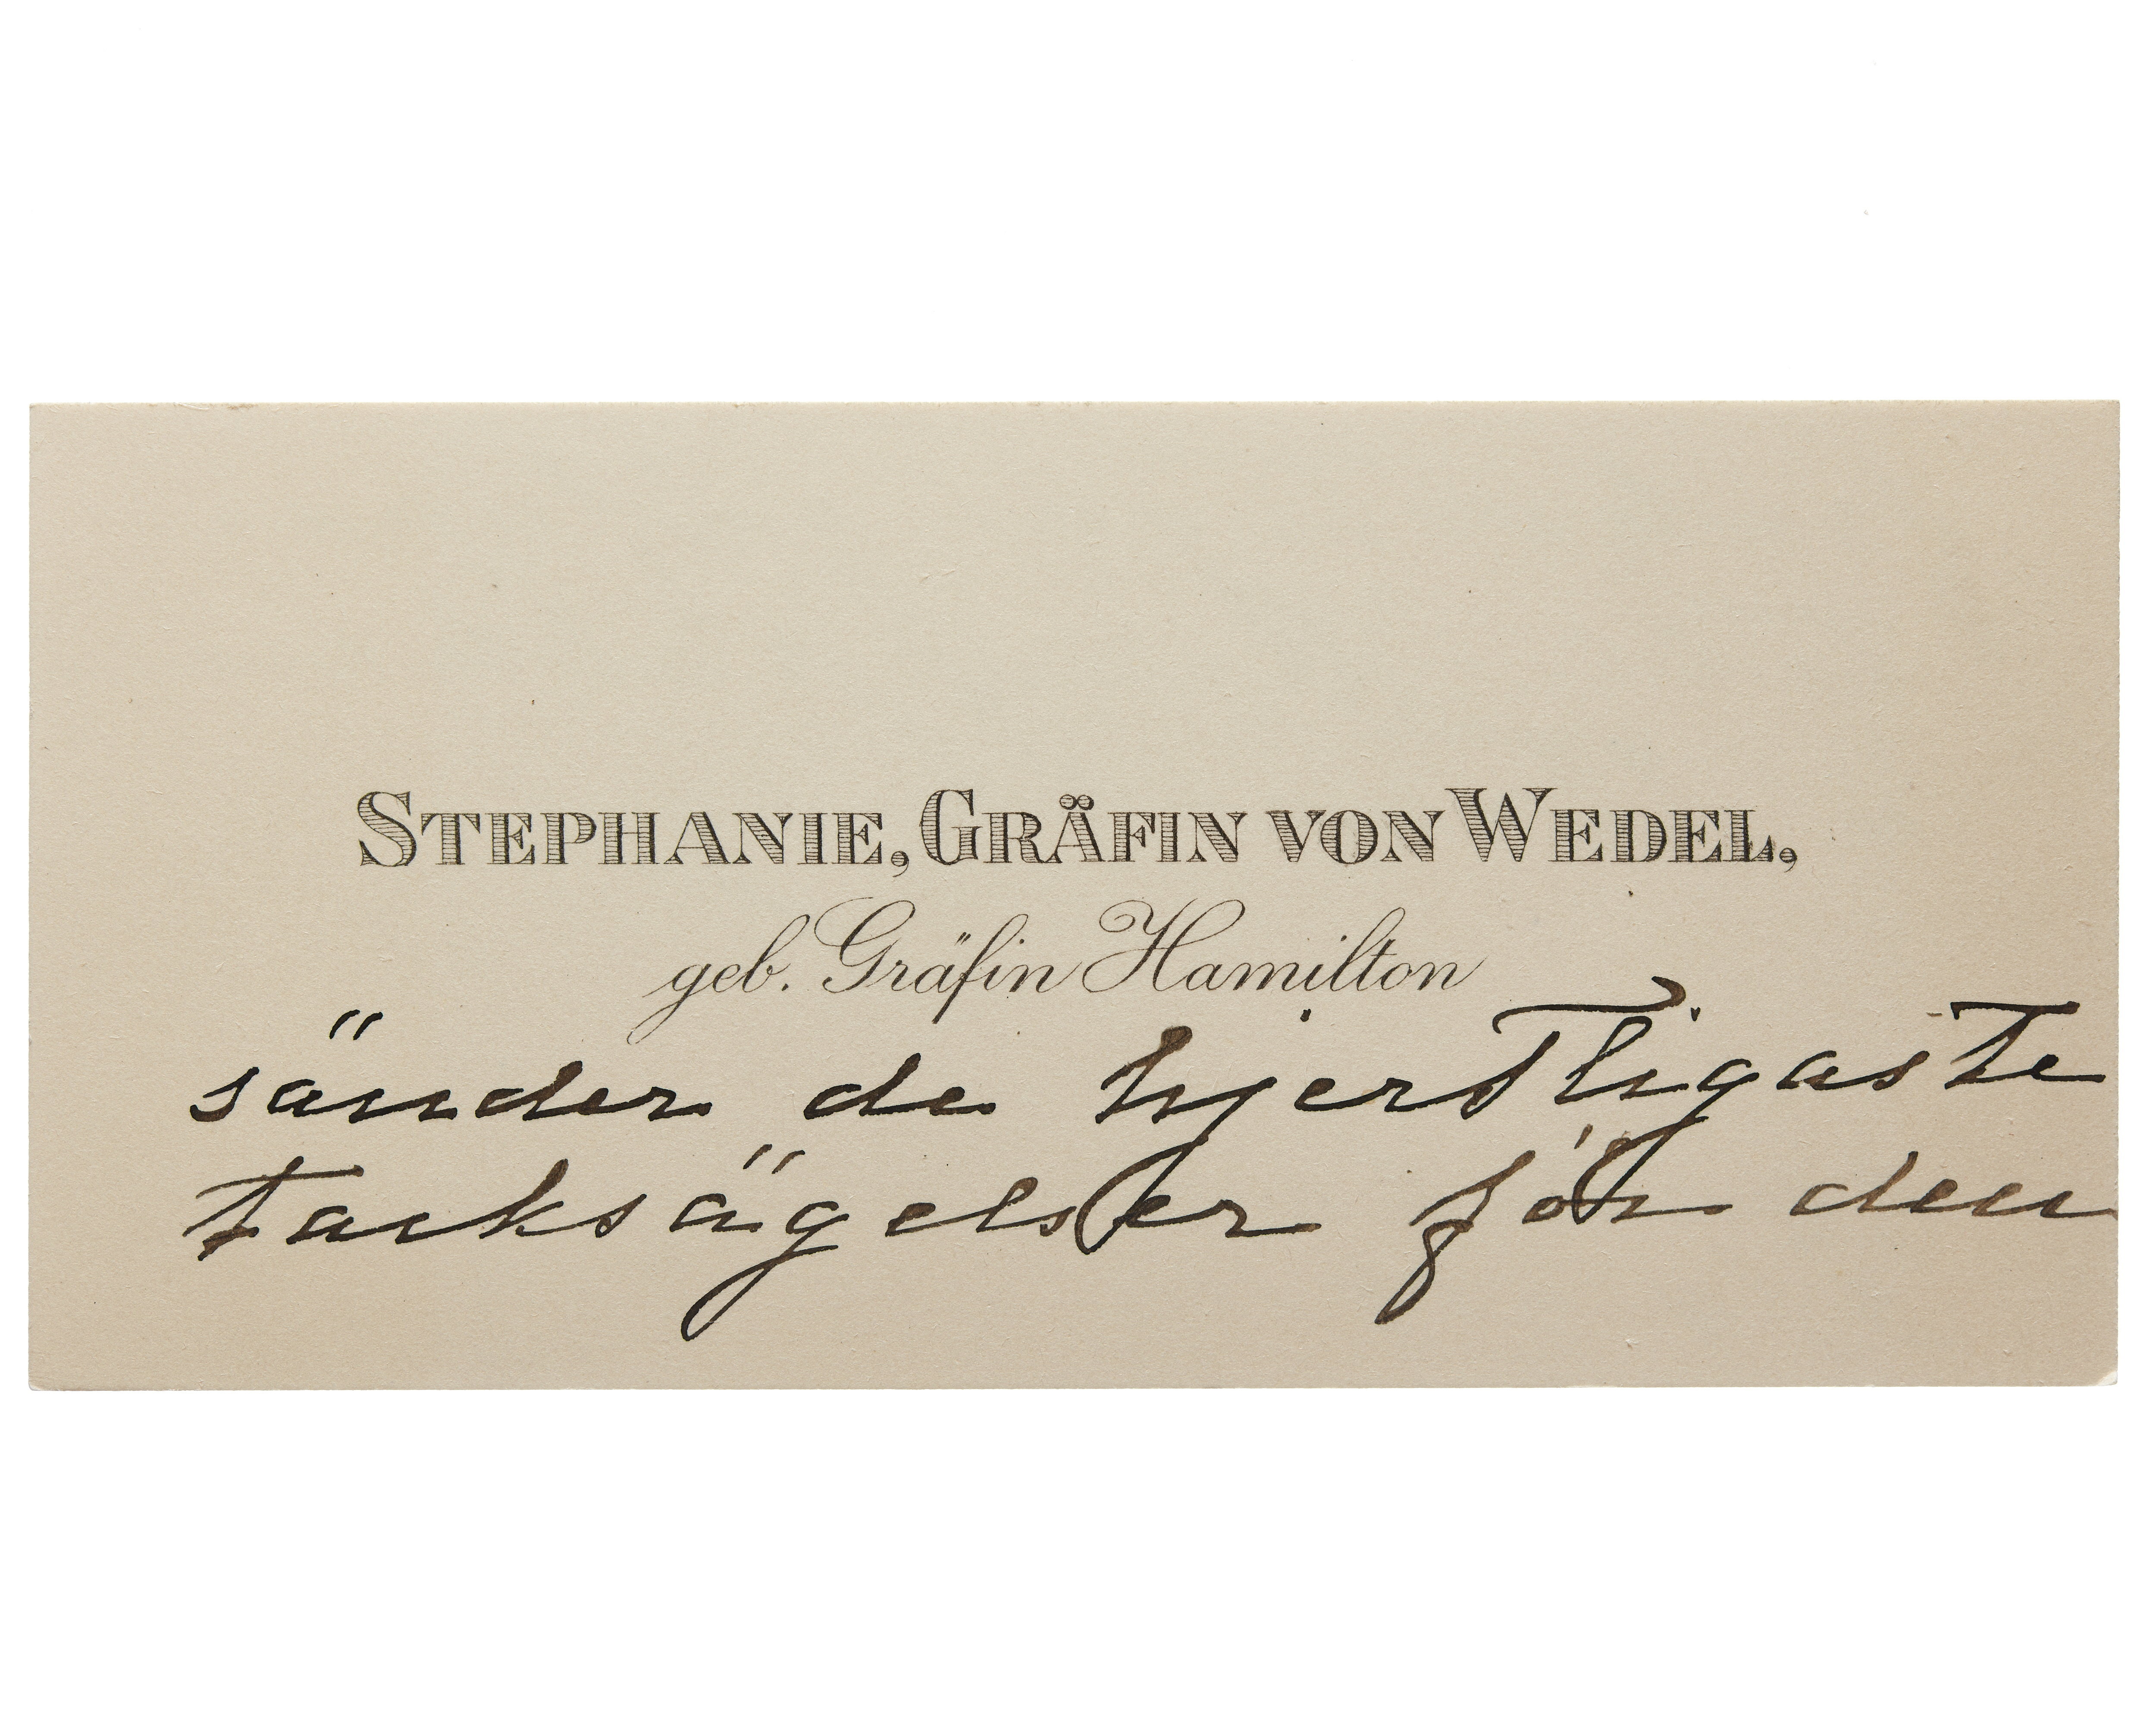 STEPHANIE, GRÄFIN VON WEDEL,
geb. Gräfin Hamilton
sänder de hjertligaste
tacksägelser för den